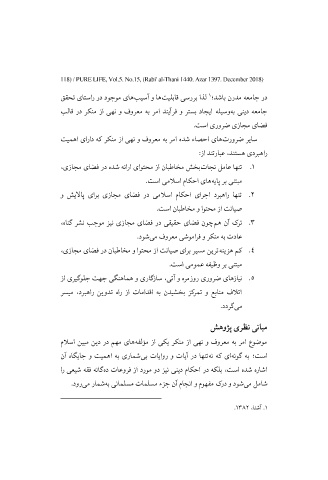 118) / PURE LIFE, Vol.5. No.15, (Rabi' al-Thani 1440. Azar 1397. December 2018)
در جامعه مدرن باشد؛۱ لذا بررسی قابلیت‌ها و آسیب‌های موجود در راستای تحقق
جامعه دینی به‌وسیله ایجاد بستر و فرآیند امر به معروف و نهی از منکر در قالب
فضای مجازی ضروری است.
سایر ضرورت‌های احصاء شده امر به معروف و نهی از منکر که دارای اهمیت
راهبردی هستند، عبارتند از:
۱. تنها عامل نجات‌بخش مخاطبان از محتوای ارائه شده در فضای مجازی،
مبتنی بر پایه‌های احکام اسلامی است.
۲. تنها راهبرد اجرای احکام اسلامی در فضای مجازی برای پالایش و
صیانت از محتوا و مخاطبان است.
۳. ترک آن هم‌چون فضای حقیقی در فضای مجازی نیز موجب نشر گناه،
عادت به منکر و فراموشی معروف می‌شود.
٤. کم هزینه‌ترین مسیر برای صیانت از محتوا و مخاطبان در فضای مجازی،
مبتنی بر وظیفه عمومی است.
٥. نیازهای ضروری روزمره و آتی، سازگاری و هماهنگی جهت جلوگیری از
اتلاف منابع و تمرکز بخشیدن به اقدامات از راه تدوین راهبرد، میسر
می‌گردد.
مبانی نظری پژوهش
موضوع امر به معروف و نهی از منکر یکی از مؤلفه‌های مهم در دین مبین اسلام
است؛ به گونه‌ای که نه‌تنها در آیات و روایات بی‌شماری به اهمیت و جایگاه آن
اشاره شده است، بلکه در احکام دینی نیز دو مورد از فروعات ده‌گانه فقه شیعی را
شامل می‌شود و درک مفهوم و انجام آن جزء مسلمات مسلمانی به‌شمار می‌رود.
۱. آشنا، ۱۳۸۲.